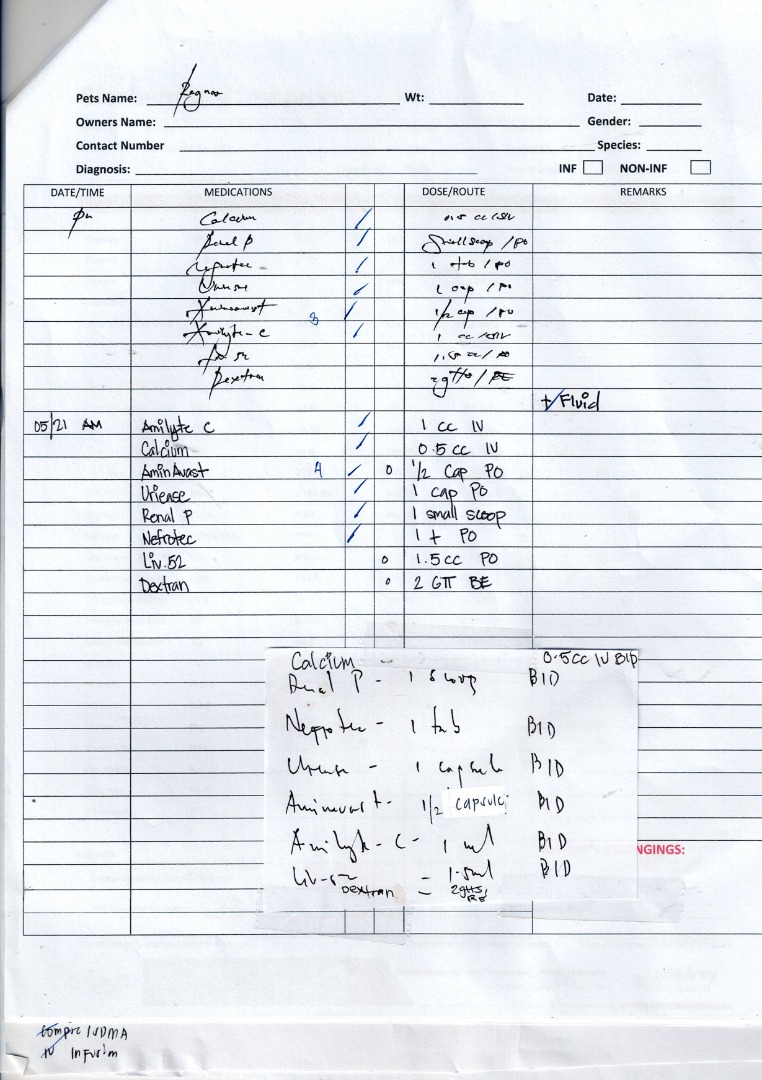 Pets Name: Wt: Date:
Owners Name: Gender:
Contact Number Species:
Diagnosis: INF NON-INF
DATE/TIME MEDICATIONS DOSE/ROUTE REMARKS
pm Calcium 0.5 cc /IV
Renal P Small scoop /PO
1 tab / PO
1 cap / PO
3 1/2 cap / PO
Amilyte-C 1 cc /IV
1.5 cc / PO
Dextran 2gtts / BE
+ Fluid
05/21 AM Amilyte C 1 cc IV
Calcium 0.5 cc IV
AminAvast 4 0 1/2 Cap PO
Uriease 1 cap PO
Renal P 1 small scoop
Nefrotec 1 t PO
Liv.52 0 1.5cc PO
Dextran 0 2 GTT BE
Calcium - 0.5cc IV BID
Renal P - 1 scoop BID
Nefrotec - 1 tab BID
Uriease - 1 capsule BID
Aminavast - 1/2 capsule BID
Amilyte - C - 1 ml BID
Liv-52 - 1.5ml BID
Dextran = 2gtts, BE
NGINGS:
IV Infusion